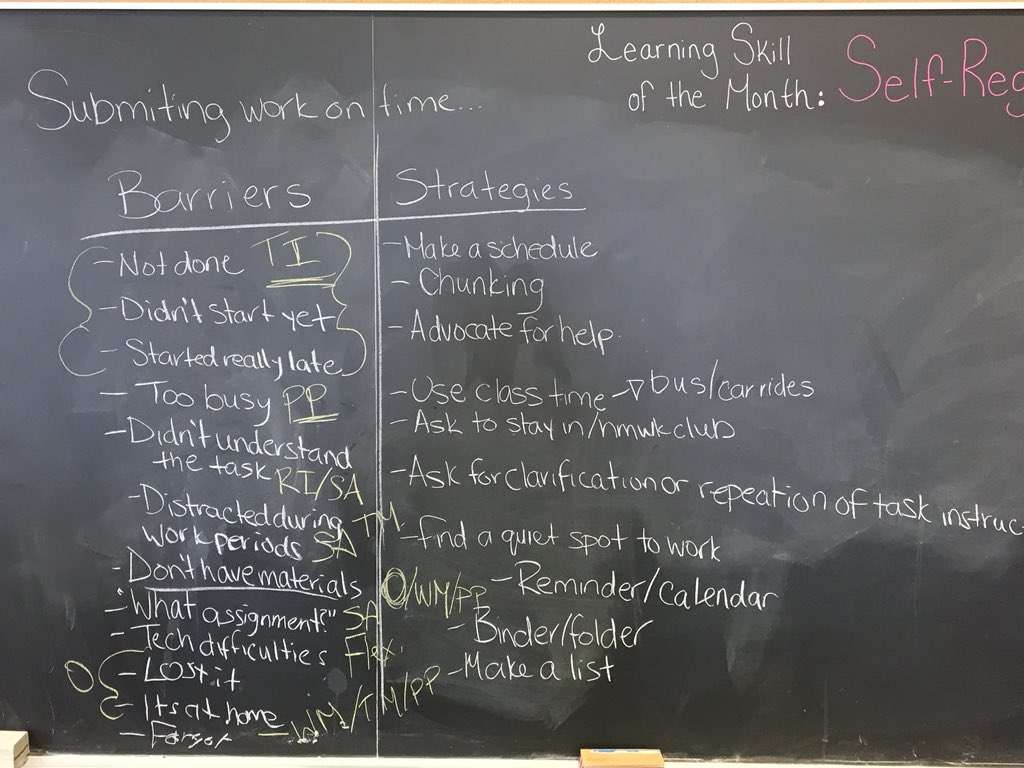 Learning Skill
of the Month: Self-Reg
Submiting work on time...
Barriers
- Not done TI
- Didn't start yet
- Started really late
- Too busy PP
- Didn't understand
the task RI/SA
- Distracted during TM
work periods SA
- Don't have materials O/WM/PP
- "What assignment?" SA
- Tech difficulties Flex.
O - Lost it
- It's at home
- Forgot - WM/TM/PP
Strategies
- Make a schedule
- Chunking
- Advocate for help.
- Use class time → bus/car rides
- Ask to stay in/hmwk club
- Ask for clarification or repeation of task instruc
- Find a quiet spot to work
- Reminder/Calendar
- Binder/folder
- Make a list